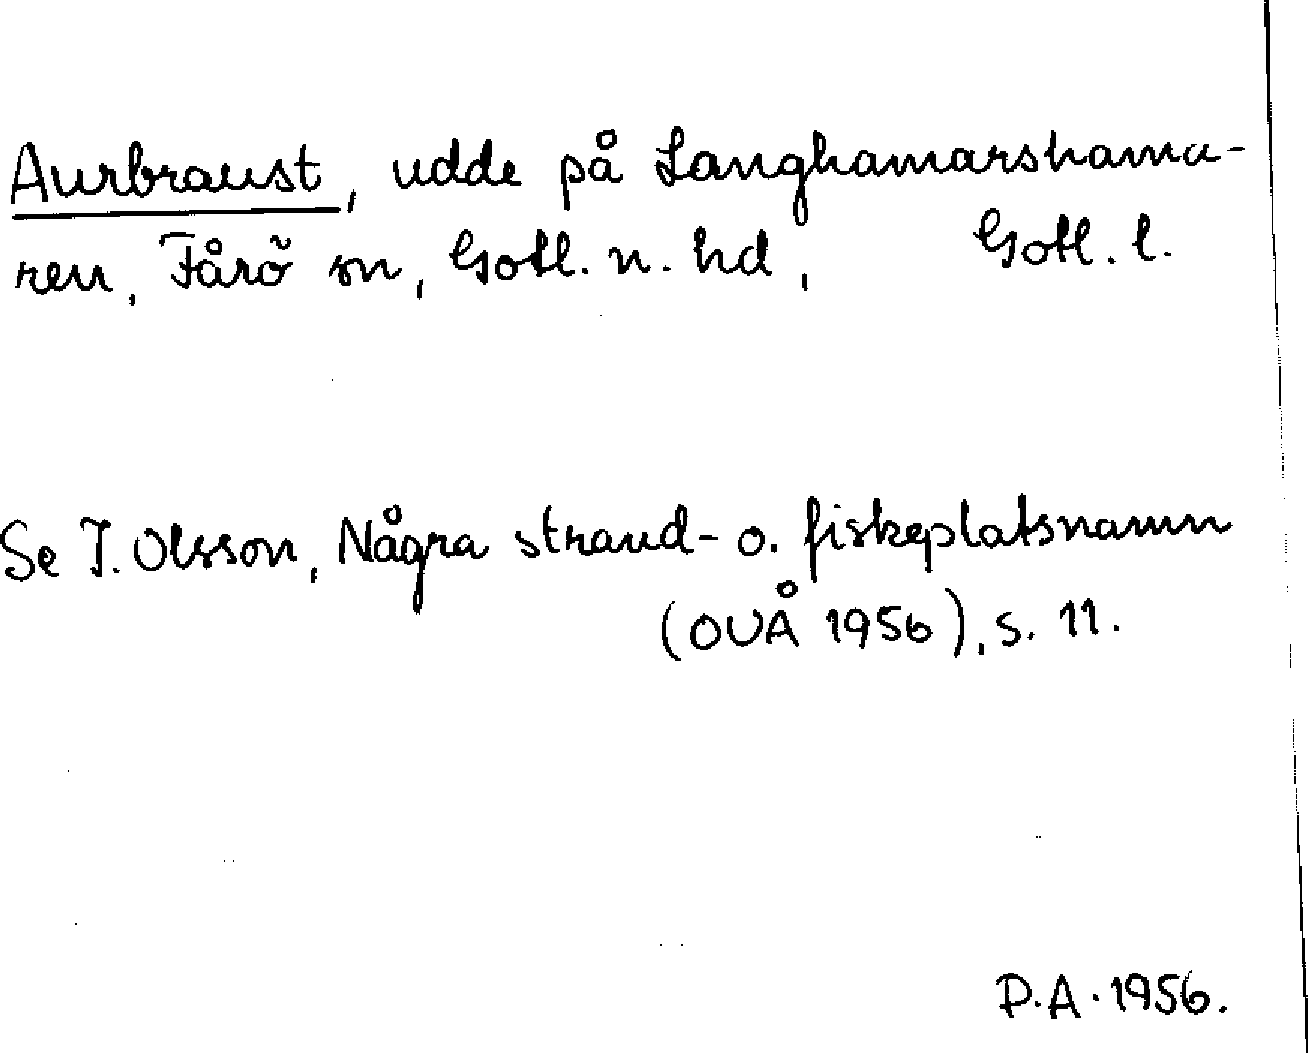 Aurbraust, udde på Langhamarshama-
ren, Fårö sn, Gotl. n. hd, Gotl. l.
Se I. Olsson, Några strand- o. fiskeplatsnamn
(OUÅ 1956), s. 11.
P.A. 1956.